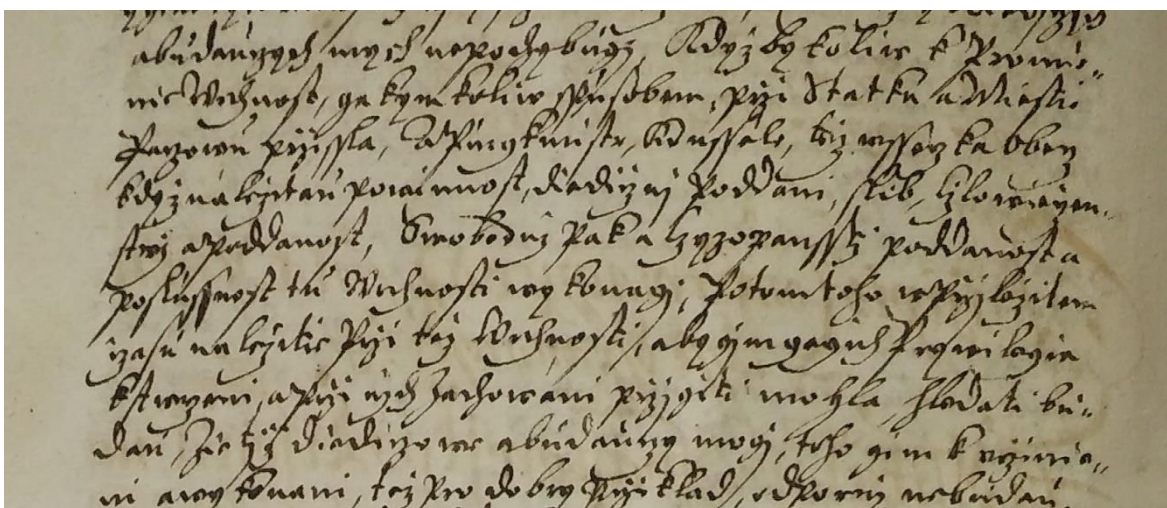 abudauczych mych nepochybugi, Kdyz by koliw k Promie„
nie Wrchnost, gakym koliw spusobem, przi Statku a Miestie
Paczowu przissla, A Purgkmistr, Konssele, tez wsseczka Obecz
kdyz nalezitau powinnost, diedicznj Poddani, slib, Czlowieczen„
stwj a poddanost, Swobodnj pak a Czyzopanssstj poddanost a
poslussnost tu Wrchnosti wykonagj, Potom toho w Przilezitem
czasu nalezitie Przi tez Wrchnosti, abygim gegich Prywilegia
kstwrzeni, a przi nych zachowani przigiti mohla, hledati bu„
dau, Zie tiz Diediczowe abudauczy mogj, toho gim k uczinie„
ni a wykonani, tez pro dobry Przyklad, odporni nebudau